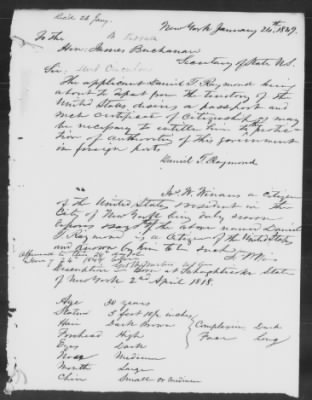 Recd 26 Jany.
New York January 24th 1849.
To the
Hon. James Buchanan
Secretary of State U.S.
Sir.
The applicant Daniel T. Raymond being
about to depart from the territory of the
United States desires a passport and
such certificate of Citizenship as may
be necessary to entitle him to protec-
tion of authority of this government
in foreign ports
Daniel T. Raymond
Winans a Citizen
of the United States resident in the
City of New York being duly sworn
says the above named Daniel
T. Raymond is a Citizen of the United States
and known by him to be such
Affirmed to this 24
Description Born at Schaghticoke State
of New York 2nd April 1818.
Age 30 years
Stature 5 foot 10 1/2 inches
Hair Dark Brown
Forehead High
Eyes Dark
Nose Medium
Mouth Large
Chin Small or medium
Complexion Dark
Face Long